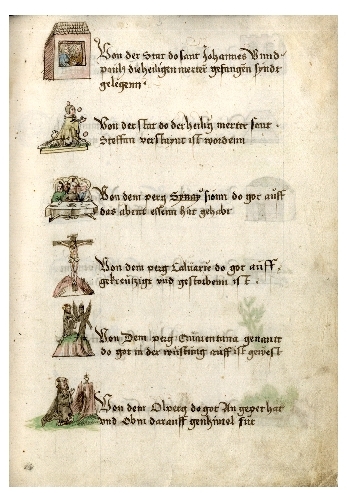 Von der Stat do sant Johannes Vnnd
pauls die heiligen merter gefangen syndt
gelegenn
Von der stat do der heilig merter sant
Steffan versteynt ist wordenn
Von dem perg Synay sionn do got auff
das abent essenn hat gehabt
Von dem perg Caluarie do got auff
gekreutzigt vnd gestorbenn ist
Von Dem perg genannt
do got in der wustung auff ist gewest
Von dem Olperg do got An gepet hat
vnd Obm darauff genhimel fur